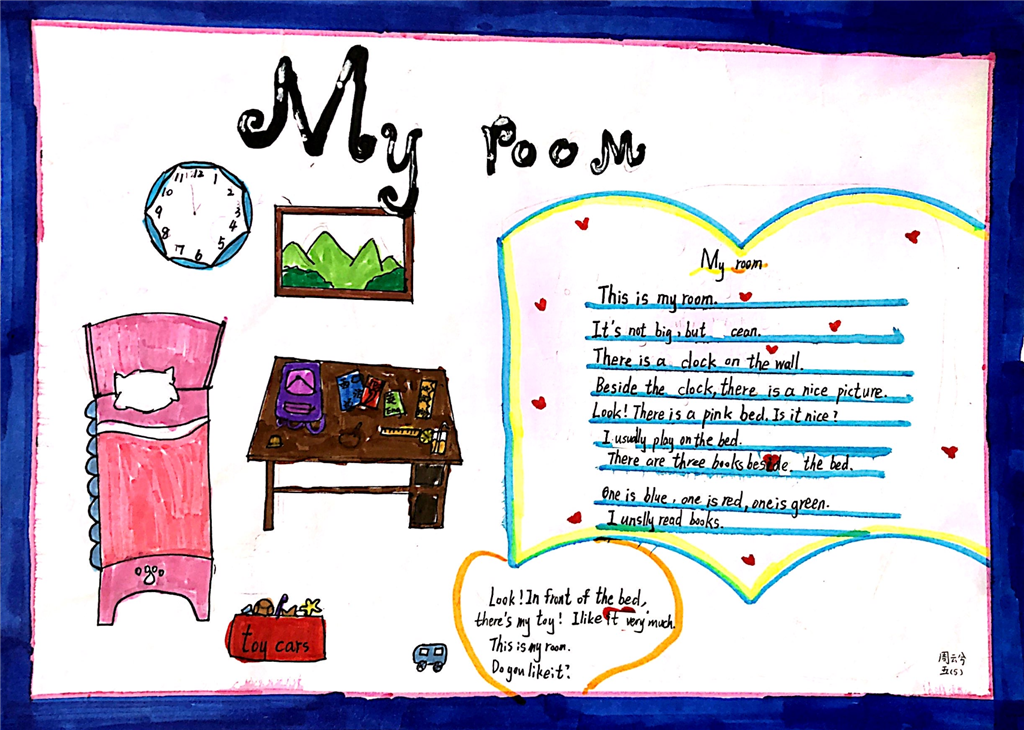 My room
11 12 1
10 2
9 3
8 4
7 6 5
My room
This is my room.
It's not big, but cean.
There is a clock on the wall.
Beside the clock, there is a nice picture.
Look! There is a pink bed. Is it nice?
I usually play on the bed.
There are three books beside the bed.
One is blue, one is red, one is green.
I unslly read books.
toy cars
Look! In front of the bed,
there's my toy! I like it very much.
This is my room.
Do you like it?
周云兮
五(5)